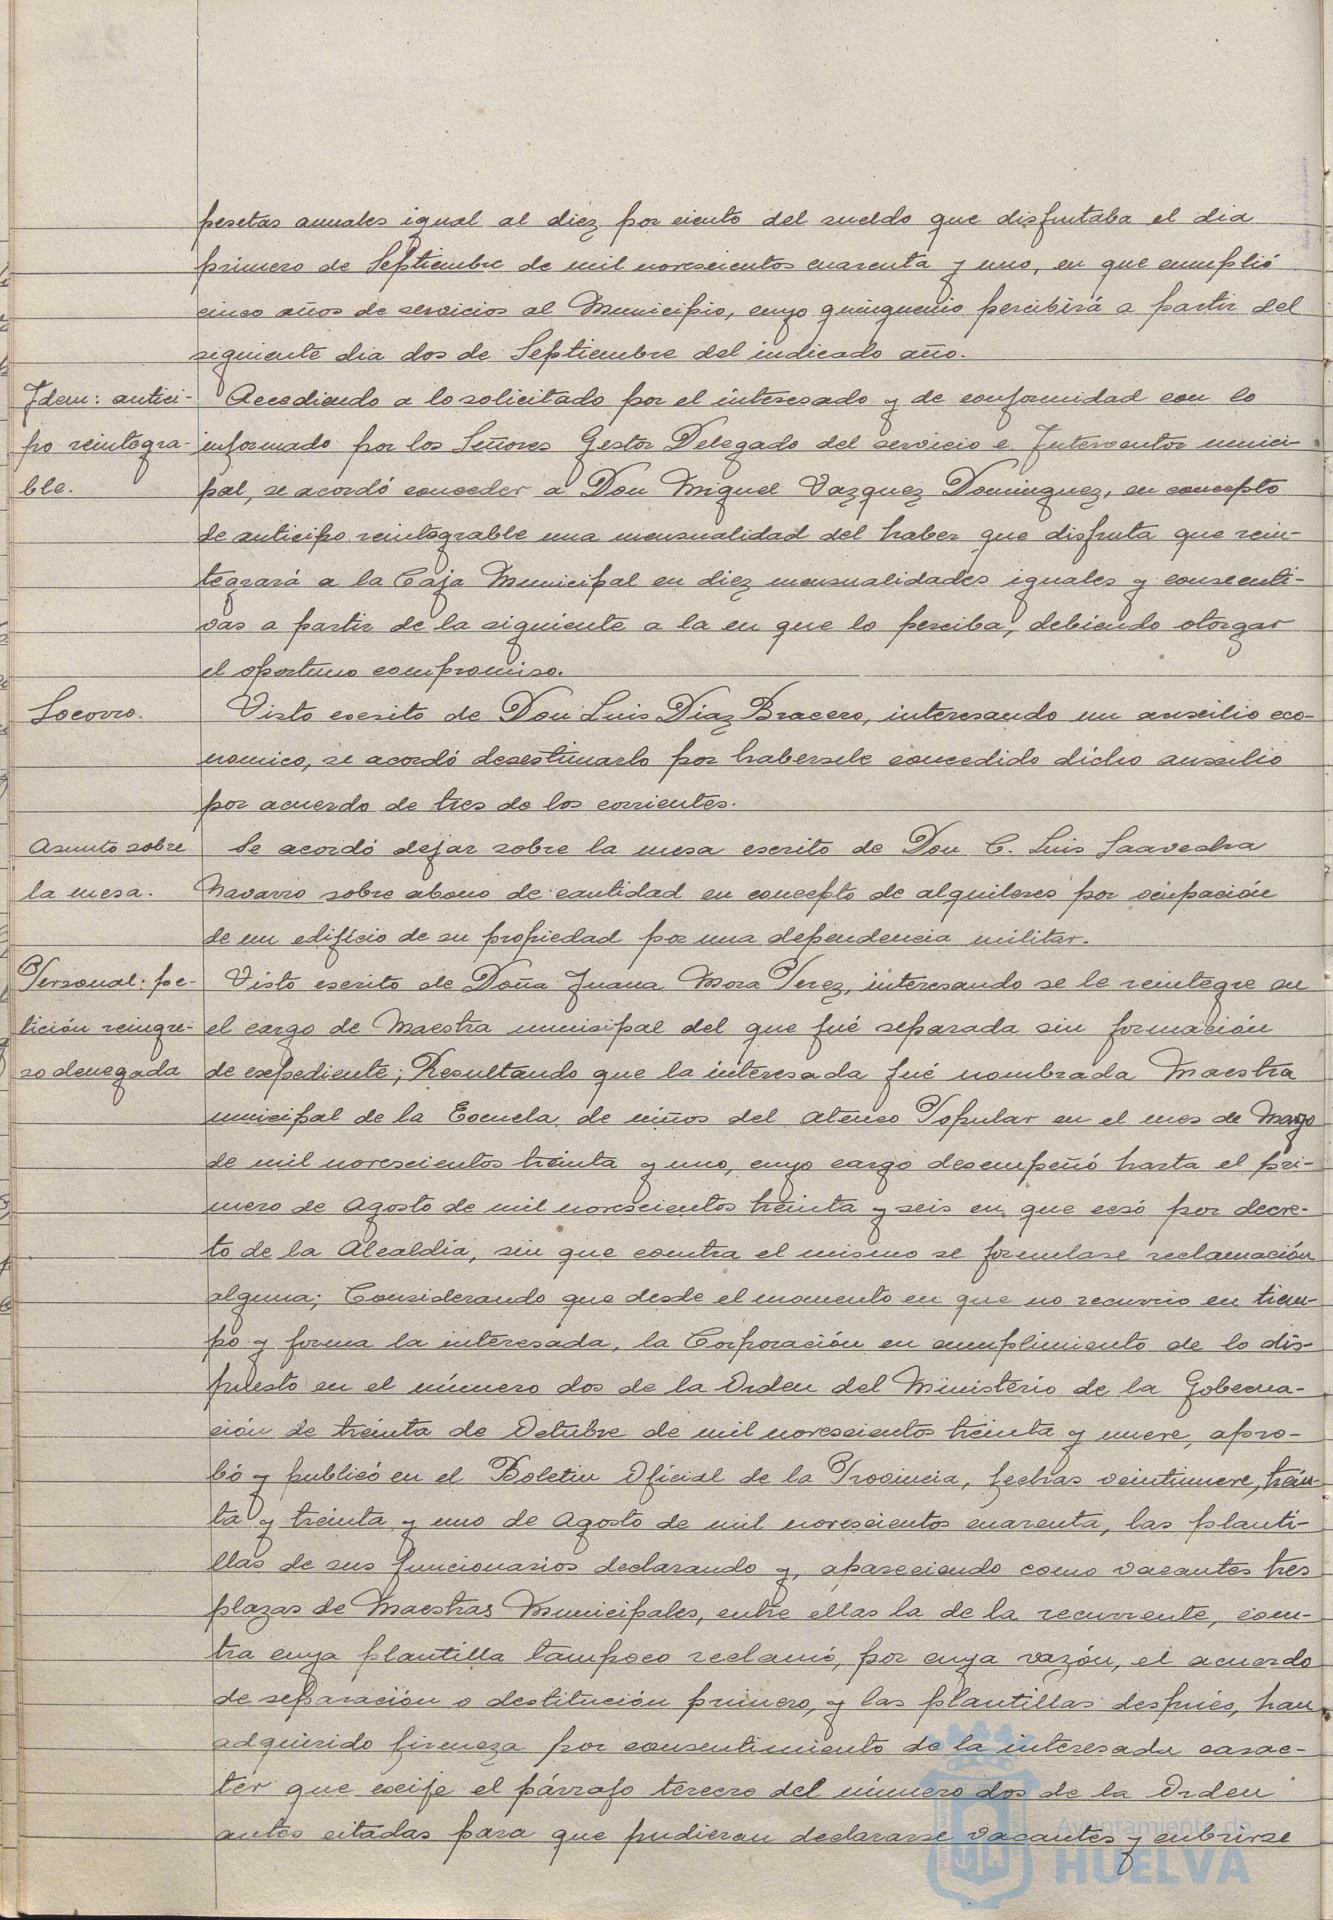 pesetas anuales igual al diez por ciento del sueldo que disfrutaba el dia
primero de Septiembre de mil novescientos cuarenta y uno, en que cumplió
cinco años de servicios al Municipio, cuyo quinquenio percibirá a partir del
siguiente dia dos de Septiembre del indicado año.
Idem: antici-
po reintegra-
ble.
Accediendo a lo solicitado por el interesado y de conformidad con lo
informado por los Señores Gestor Delegado del servicio e Interventor munici-
pal, se acordó conceder a Don Miguel Vazquez Dominguez, en concepto
de anticipo reintegrable una mensualidad del haber que disfruta que rein-
tegrará a la Caja Municipal en diez mensualidades iguales y consecuti-
vas a partir de la siguiente a la en que lo perciba, debiendo otorgar
el oportuno compromiso.
Socorro.
Visto escrito de Don Luis Díaz Bracero, interesando un auxilio eco-
nomico, se acordó desestimarlo por habersele concedido dicho auxilio
por acuerdo de tres de los corrientes.
Asunto sobre
la mesa.
Se acordó dejar sobre la mesa escrito de Don C. Luis Saavedra
Navarro sobre abono de cantidad en concepto de alquileres por ocupación
de un edificio de su propiedad por una dependencia militar.
Personal: pe-
tición reingre-
so denegada
Visto escrito de Doña Juana Mora Perez, interesando se le reintegre en
el cargo de Maestra municipal del que fué separada sin formación
de expediente; Resultando que la interesada fué nombrada Maestra
municipal de la Escuela de niños del Ateneo Popular en el mes de Mayo
de mil novescientos treinta y uno, cuyo cargo desempeñó hasta el pri-
mero de Agosto de mil novescientos treinta y seis en que cesó por decre-
to de la Alcaldía, sin que contra el mismo se formulase reclamación
alguna; Considerando que desde el momento en que no recurrio en tiem-
po y forma la interesada, la Corporación en cumplimiento de lo dis-
puesto en el número dos de la Orden del Ministerio de la Goberna-
ción de treinta de Octubre de mil novescientos treinta y nueve, apro-
bó y publicó en el Boletin Oficial de la Provincia, fechas veintinueve, trein-
ta y treinta y uno de Agosto de mil novescientos cuarenta, las planti-
llas de sus funcionarios declarando y, apareciendo como vacantes tres
plazas de Maestras Municipales, entre ellas la de la recurrente, con-
tra cuya plantilla tampoco reclamó, por cuya razón, el acuerdo
de separación o destitución primero, y las plantillas después, han
adquirido firmeza por consentimiento de la interesada carac-
ter que exije el párrafo tercero del número dos de la Orden
antes citadas para que pudieran declararse vacantes y cubrirse
Ayuntamiento de
HUELVA